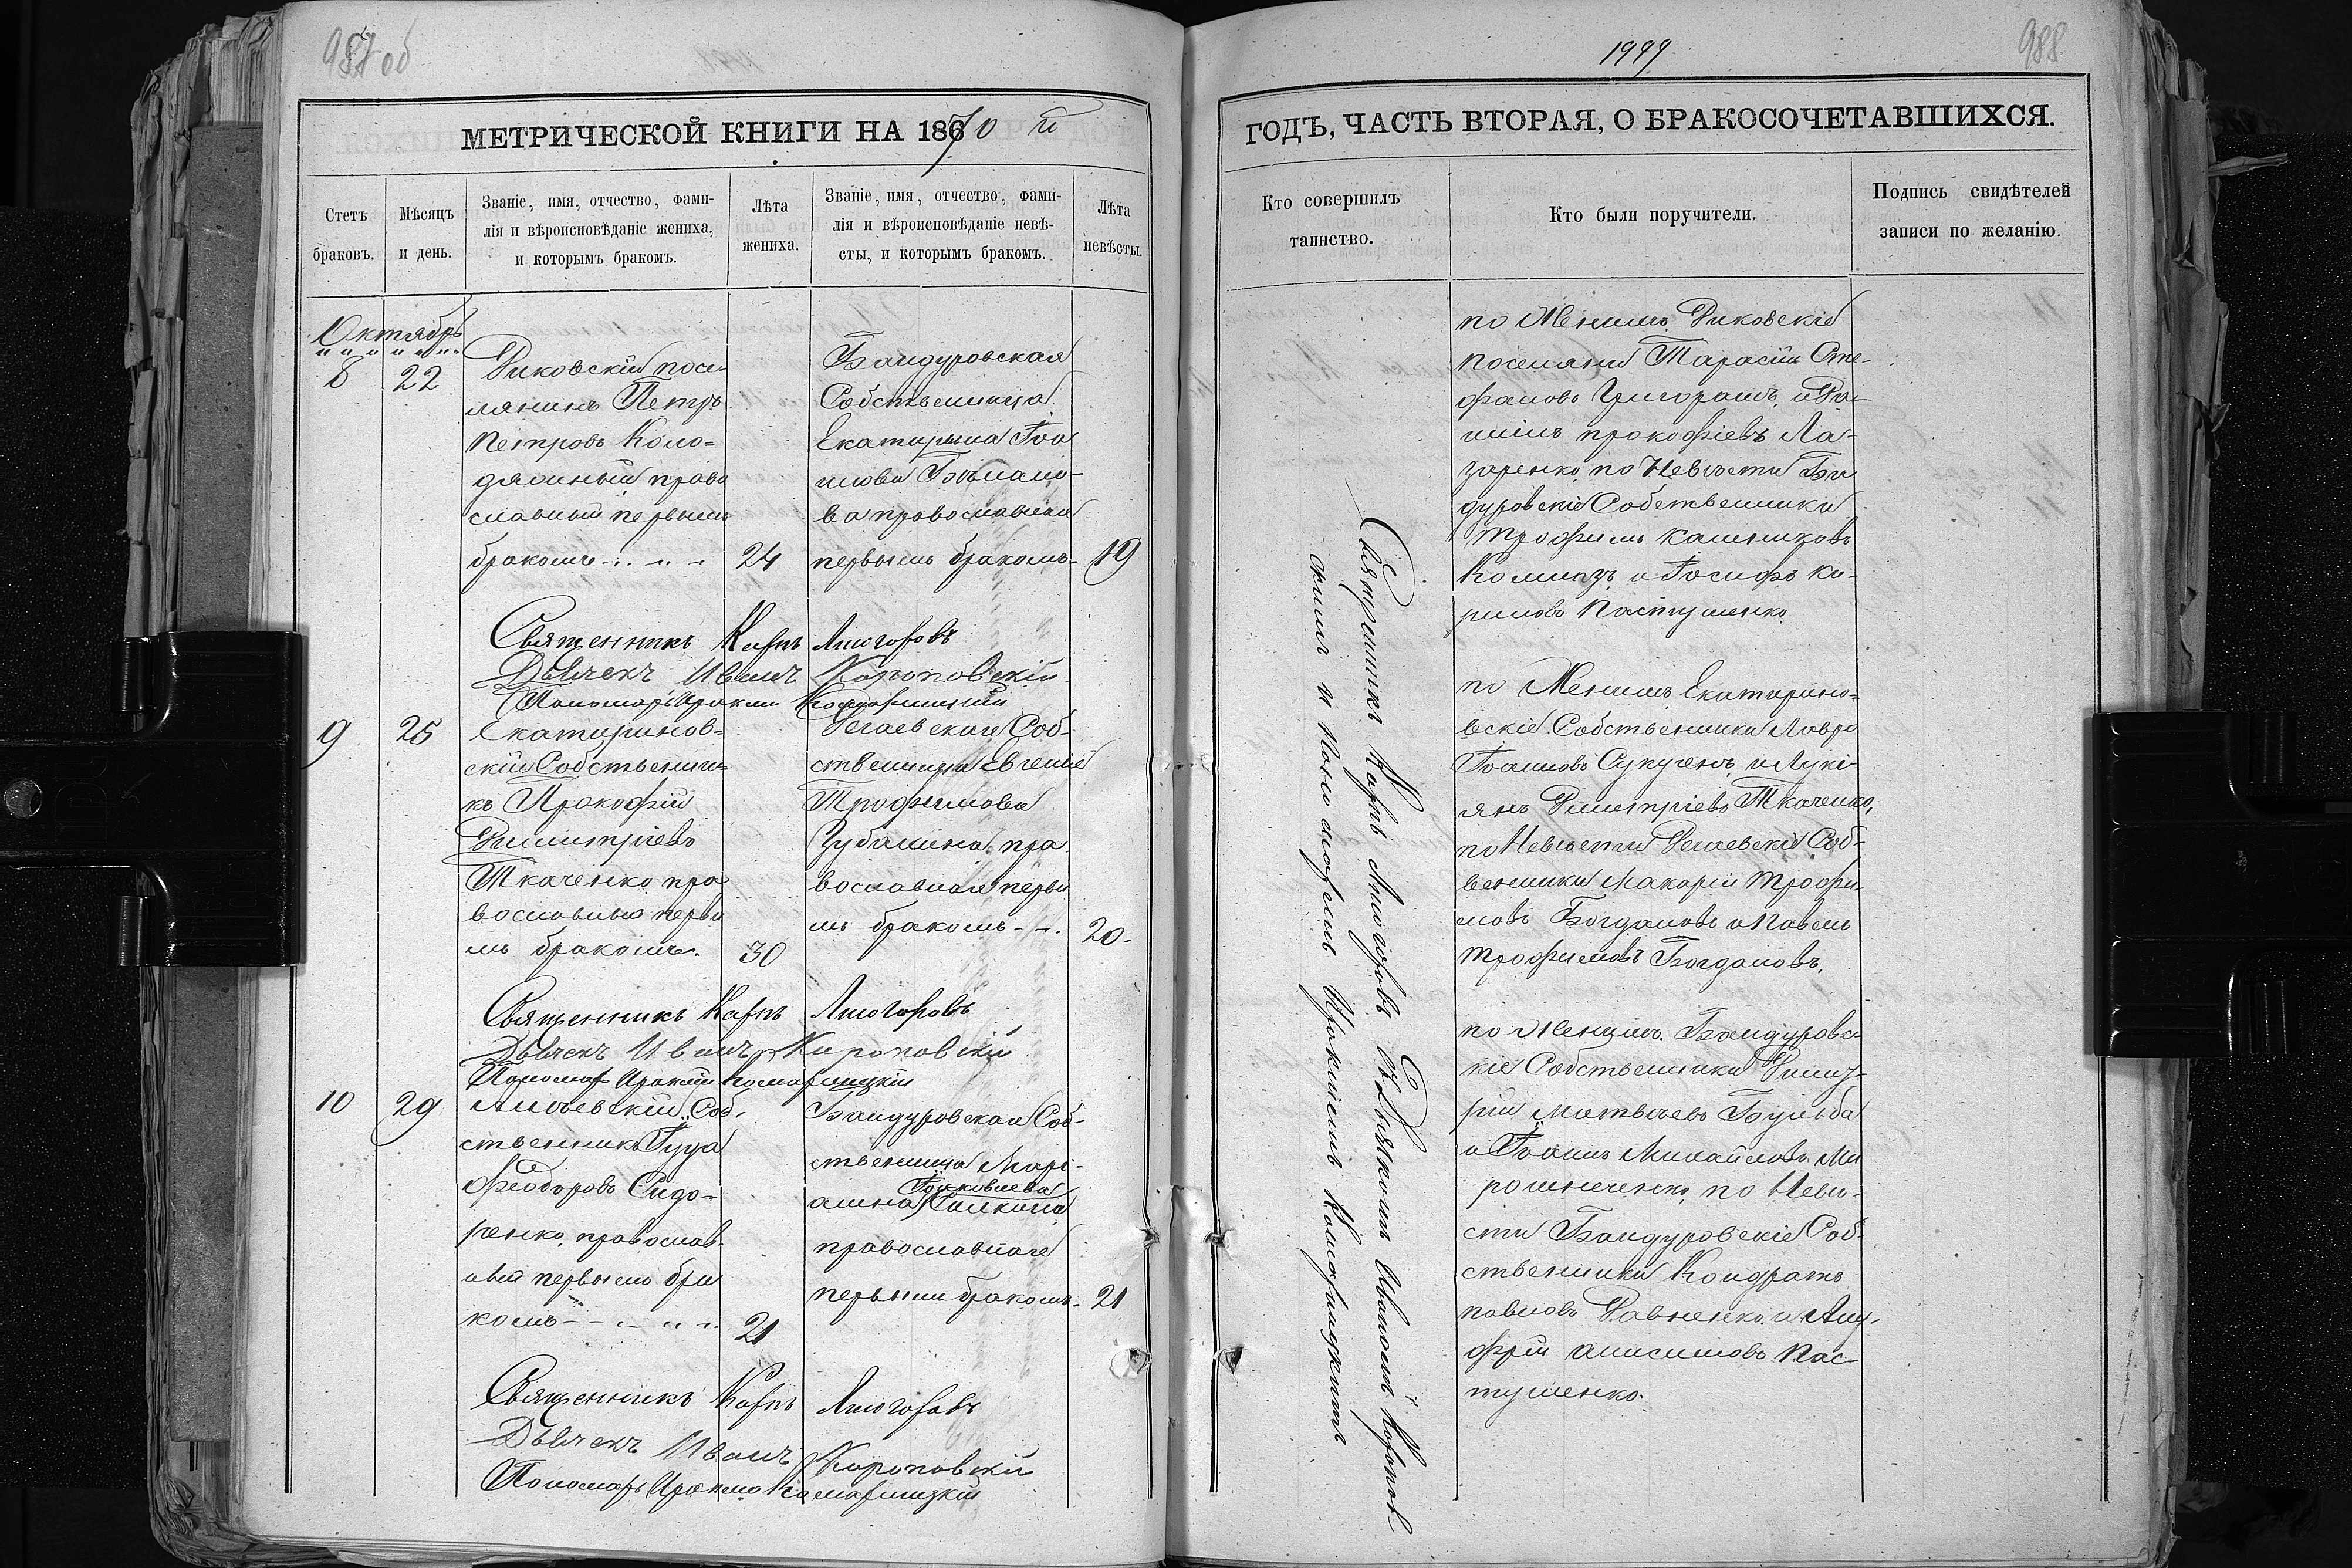 987 об
МЕТРИЧЕСКОЙ КНИГИ НА 1870 й
Счетъ браковъ.
Мѣсяцъ и день.
Званіе, имя, отчество, фами-
лія и вѣроисповѣданіе жениха,
и которымъ бракомъ.
Лѣта жениха.
Званіе, имя, отчество, фами-
лія и вѣроисповѣданіе невѣ-
сты, и которымъ бракомъ.
Лѣта невѣсты.
Октябрь
8 22
посе-
лянинъ Петръ
Петровъ Коло-
дяжный право
славный первымъ
бракомъ 24
Бандуровская
Собственница
Екатерина Іоа
нова
ва православная
первымъ бракомъ 19
Священникъ Карпъ
Дьячекъ Иванъ Короповскій
Пономарь Ираклій Комарницкій
9 25
Екатеринов-
скій Собственни-
къ Прокофій
Димитріевъ
Ткаченко пра
вославный первы
мъ бракомъ. 30
Соб-
ственница Евгенія
Трофимова
пра
вославная первы
мъ бракомъ 20.
Священникъ Карпъ
Дьячекъ Иванъ Короповскій
Пономарь Ираклій Комарницкій
10 29
Соб-
ственникъ Іуда
Феодоровъ Сидо-
ренко, православ-
ный первымъ бра
комъ 21
Бандуровская Соб-
ственница Марі-
анна
православная
первымъ бракомъ 21
Священникъ Карпъ
Дьячекъ Иванъ Короповскій
Пономарь Ираклій Комарницкій
1999
988
ГОДЪ, ЧАСТЬ ВТОРАЯ, О БРАКОСОЧЕТАВШИХСЯ.
Кто совершилъ
таинство.
Кто были поручители.
Подпись свидѣтелей
записи по желанію.
Священникъ Карпъ съ Дьякомъ Иваномъ Коропов-
скимъ и пономаремъ Иракліемъ Комарницкимъ
по Женихѣ
поселяне Тарасій Сте-
фановъ Григорашъ, и
прокофіевъ Ла-
заренко, по Невѣстѣ Бан
дуровскіе Собственники
Трофимъ
и Іосифъ Ки-
риловъ Пастушенко.
по Женихѣ Екатерино-
вскіе Собственники Лавръ
Іоанновъ и Лукі-
янъ Димитріевъ Ткаченко,
по Невѣстѣ Соб-
венники Макарій Трофи-
мовъ Богдановъ и Павелъ
Трофимовъ Богдановъ.
по Женихѣ Бандуровс-
кіе Собственники Димит-
рій Матвѣевъ Бульба
и Іоаннъ Михайловъ Ми
рошниченко, по Невѣ-
стѣ Бандуровскіе Соб-
ственники Кондратъ
павловъ и Ану-
фрій анисимовъ Пас-
тушенко.